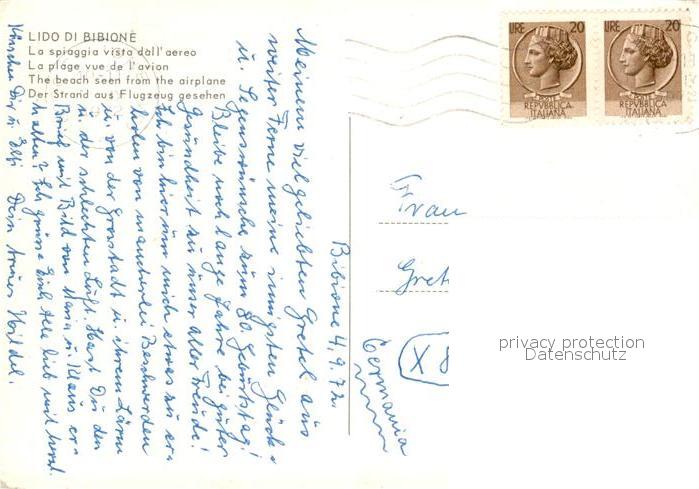 LIDO DI BIBIONE
La spiaggia vista dall'aereo
La plage vue de l'avion
The beach seen from the airplane
Der Strand aus Flugzeug gesehen
LIRE 20
REPVBBLICA
ITALIANA
LIRE 20
REPVBBLICA
ITALIANA
Bibione 4.9.72.
Meinem vielgeliebten Gretel aus
weiter Ferne meine innigsten Glück-
u. Segenswünsche zum 80. Geburtstag!
Bleibe noch lange Jahre bei guter
Gesundheit zu unser aller Freude!
Ich bin hier um mich etwas zu er-
holen von mancherlei Beschwerden
u. von der Grosstadt u. ihrem Lärm
u. der schlechten Luft. Hast Du den
Brief mit Bild von Maria u. Klaus er-
halten? Ich grüsse Euch Alle lieb und herzl.
Dir u. Elfi Dein treues Hildel.
Frau
Gret
X 8
Germania
privacy protection
Datenschutz